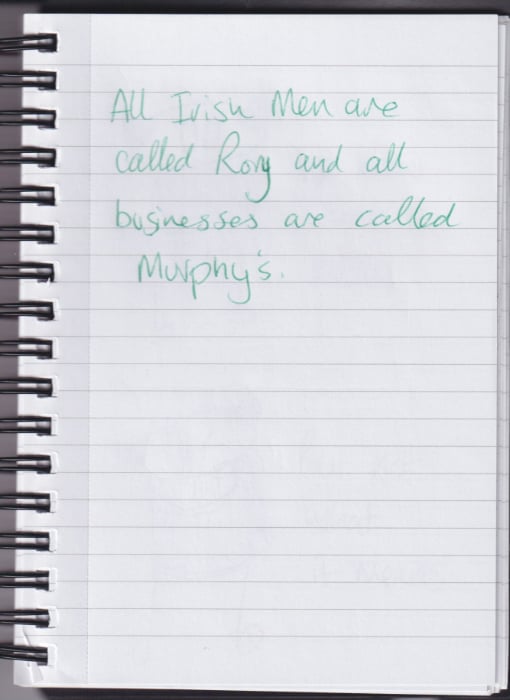 All Irish Men are
called Rory and all
businesses are called
Murphy's.